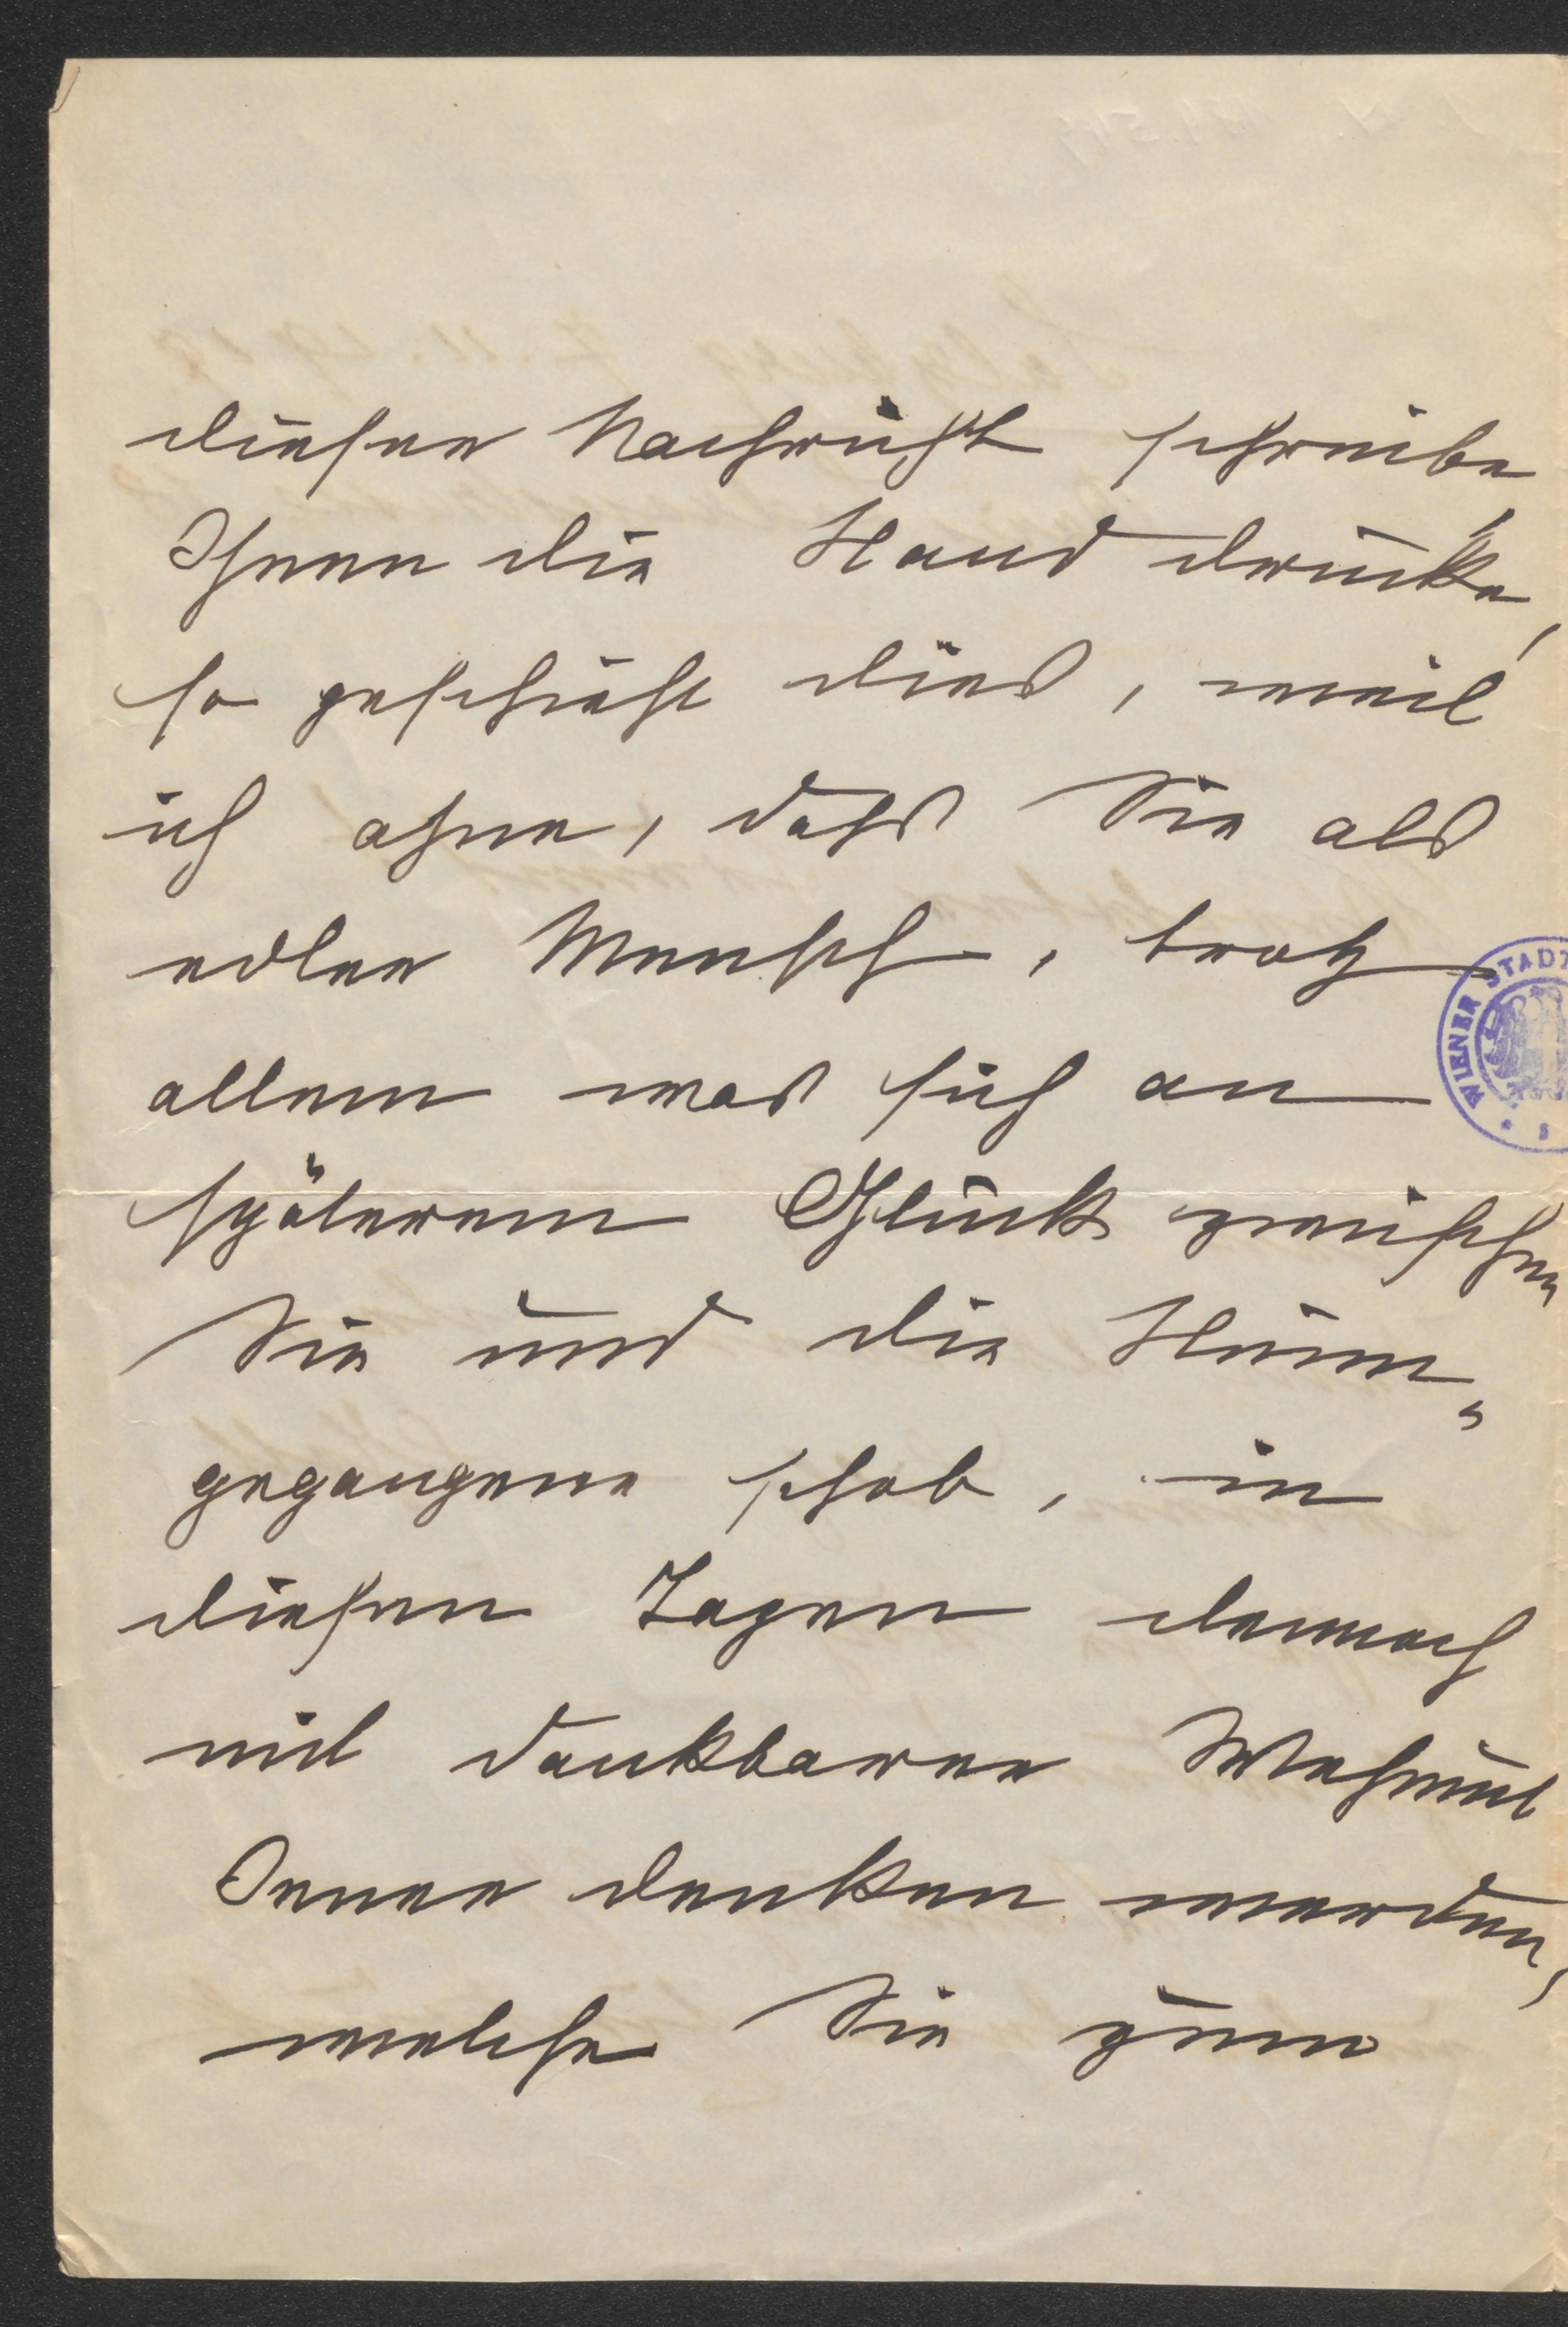 dieser Nachricht schreibe,
Ihnen die Hand drücke,
so geschieht dies, weil
ich ahne, dass Sie als
edler Mensch, trotz
allem was sich an
späterem Glück zwischen
Sie und die Heim-
gegangene schob, in
diesen Tagen dennoch
mit dankbarer Wehmut
Jener denken werden,
welche Sie zum
WIENER STADT